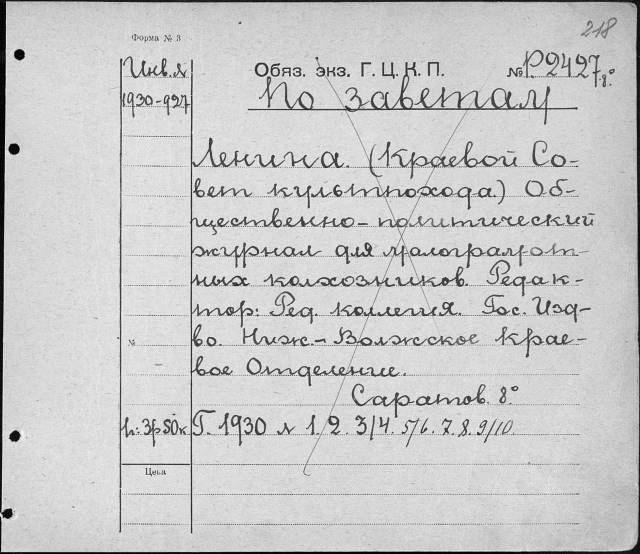 218
Форма № 3
Инв. №
1930-927
Обяз. экз. Г. Ц. К. П. № Р.2427 8°
По заветам
Ленина. (Краевой Со-
вет культпохода.) Об-
щественно-политический
журнал для малограмот-
ных колхозников. Редак-
тор: Ред. коллегия. Гос. Изд-
во. Ниж.-Волжское Крае-
№
вое Отделение.
Саратов. 8°
ц: 3р 50к. Г. 1930 № 1. 2. 3/4. 5/6. 7. 8. 9/10.
Цена